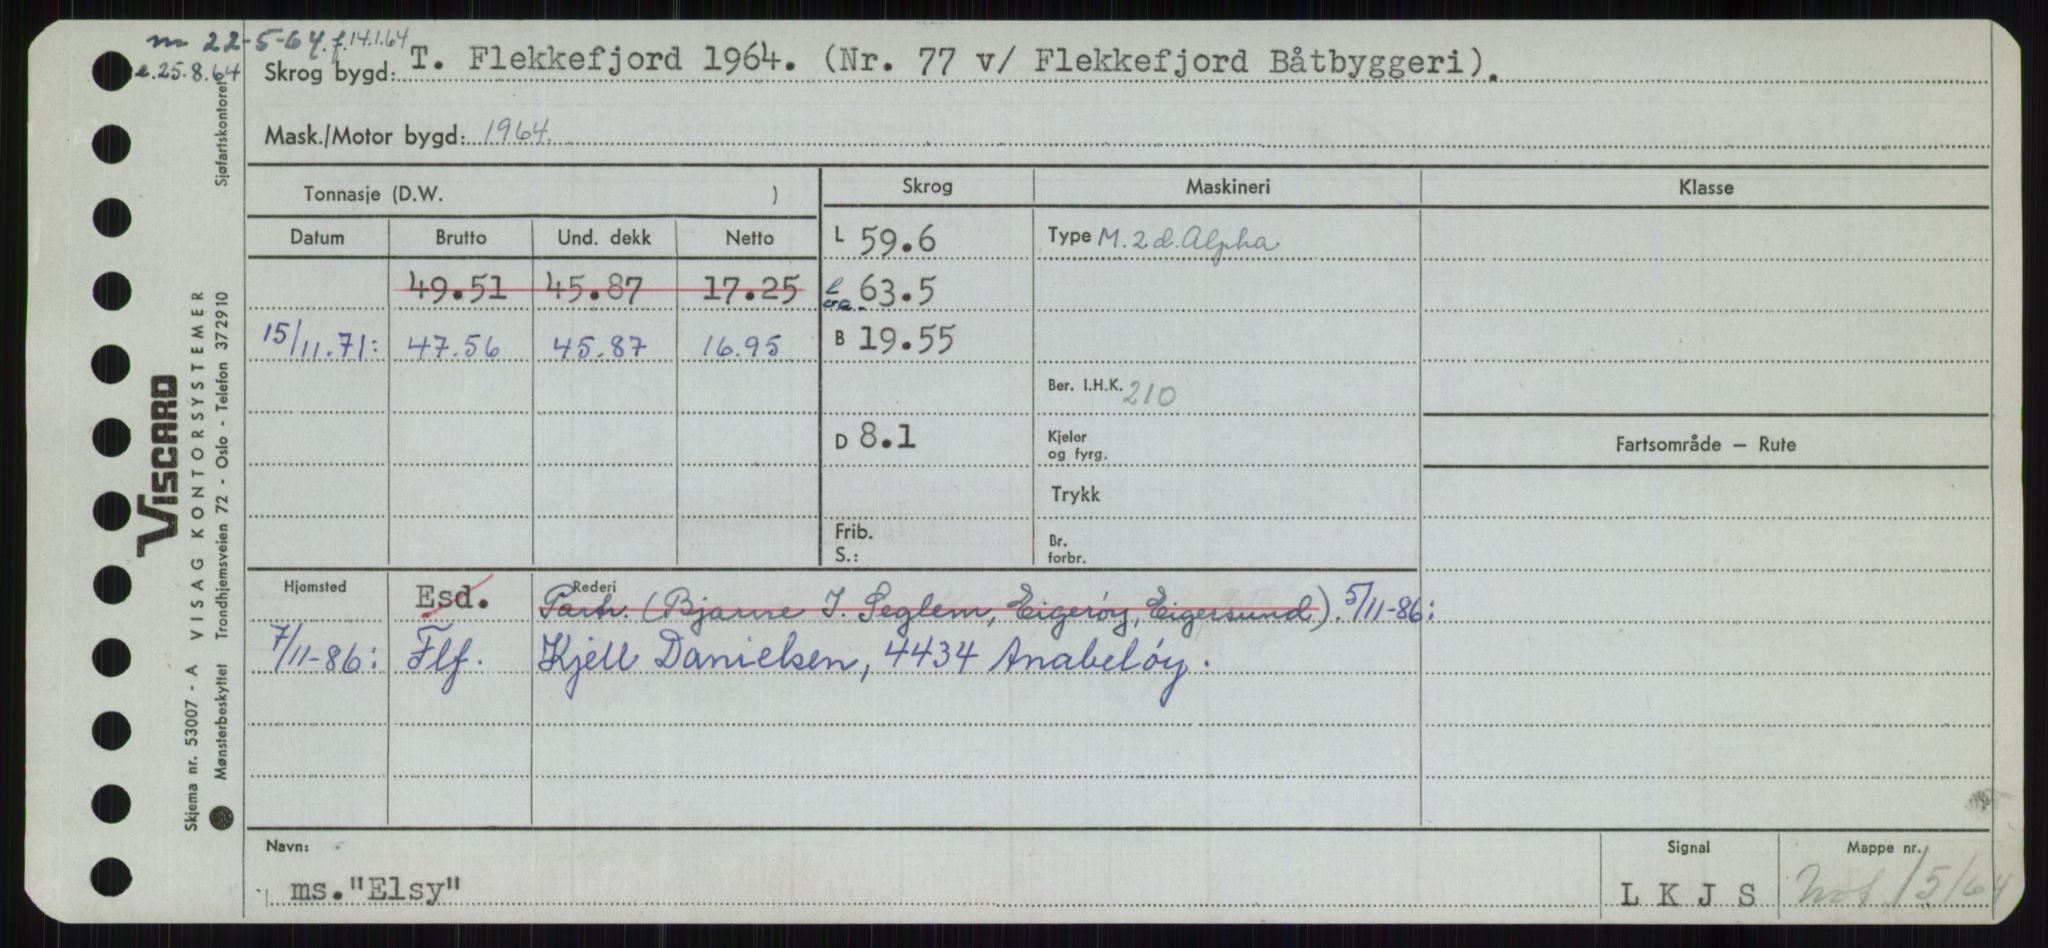 m 22-5-64. f.14.1.64
e.25.8.64
Skrog bygd: T. Flekkefjord 1964. (Nr. 77 v/ Flekkefjord Båtbyggeri).
Mask./Motor bygd: 1964.
Tonnasje (D.W. )
Skrog Maskineri Klasse
Datum Brutto Und. dekk Netto
L 59.6 Type M.2d.Alpha
49.51 45.87 17.25 63.5
15/11.71: 47.56 45.87 16.95 B 19.55
Ber. I.H.K. 210
D 8.1 Kjeler
og fyrg.
Fartsområde — Rute
Trykk
Frib.
S.:
Br.
forbr.
Hjemsted Esd. Rederi Partr. (Bjarne I. Seglem, Eigerøy, Eigersund). 5/11-86:
7/11-86: Flf. Kjell Danielsen, 4434 Anabeløy.
Navn: Signal Mappe nr.
ms."Elsy" L K J S 15/64
VISCARD
Skjema nr. 53007 - A VISAG KONTORSYSTEMER
Mønsterbeskyttet Trondhjemsveien 72 - Oslo - Telefon 372910 Sjøfartskontoret